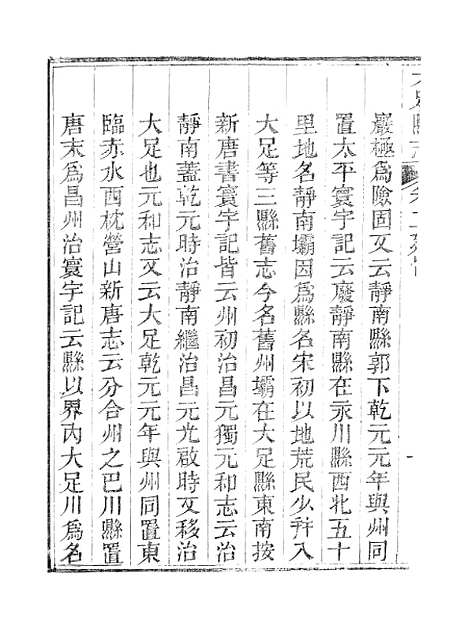 巖極爲險固又云靜南縣郭下乾元元年與州同
置太平寰宇記云廢靜南縣在永川縣西北五十
里地名靜南壩因爲縣名宋初以地荒民少幷入
大足等三縣舊志今名舊州壩在大足縣東南按
新唐書寰宇記皆云州初治昌元獨元和志云治
靜南蓋乾元時治靜南繼治昌元光啟時又移治
大足也元和志又云大足乾元元年與州同置東
臨赤水西枕營山新唐志云分合州之巴川縣置
唐末爲昌州治寰宇記云縣以界內大足川爲名